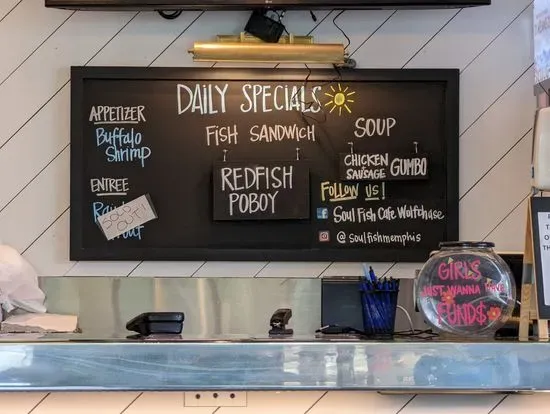 DAILY SPECIALS
APPETIZER
Buffalo
Shrimp
ENTREE
SOLD
OUT!
FISH SANDWICH
REDFISH
POBOY
SOUP
CHICKEN
SAUSAGE GUMBO
FOLLOW US!
Soul Fish Cafe Wolfchase
@soulfishmemphis
GIRLS
JUST WANNA HAVE
FUND$